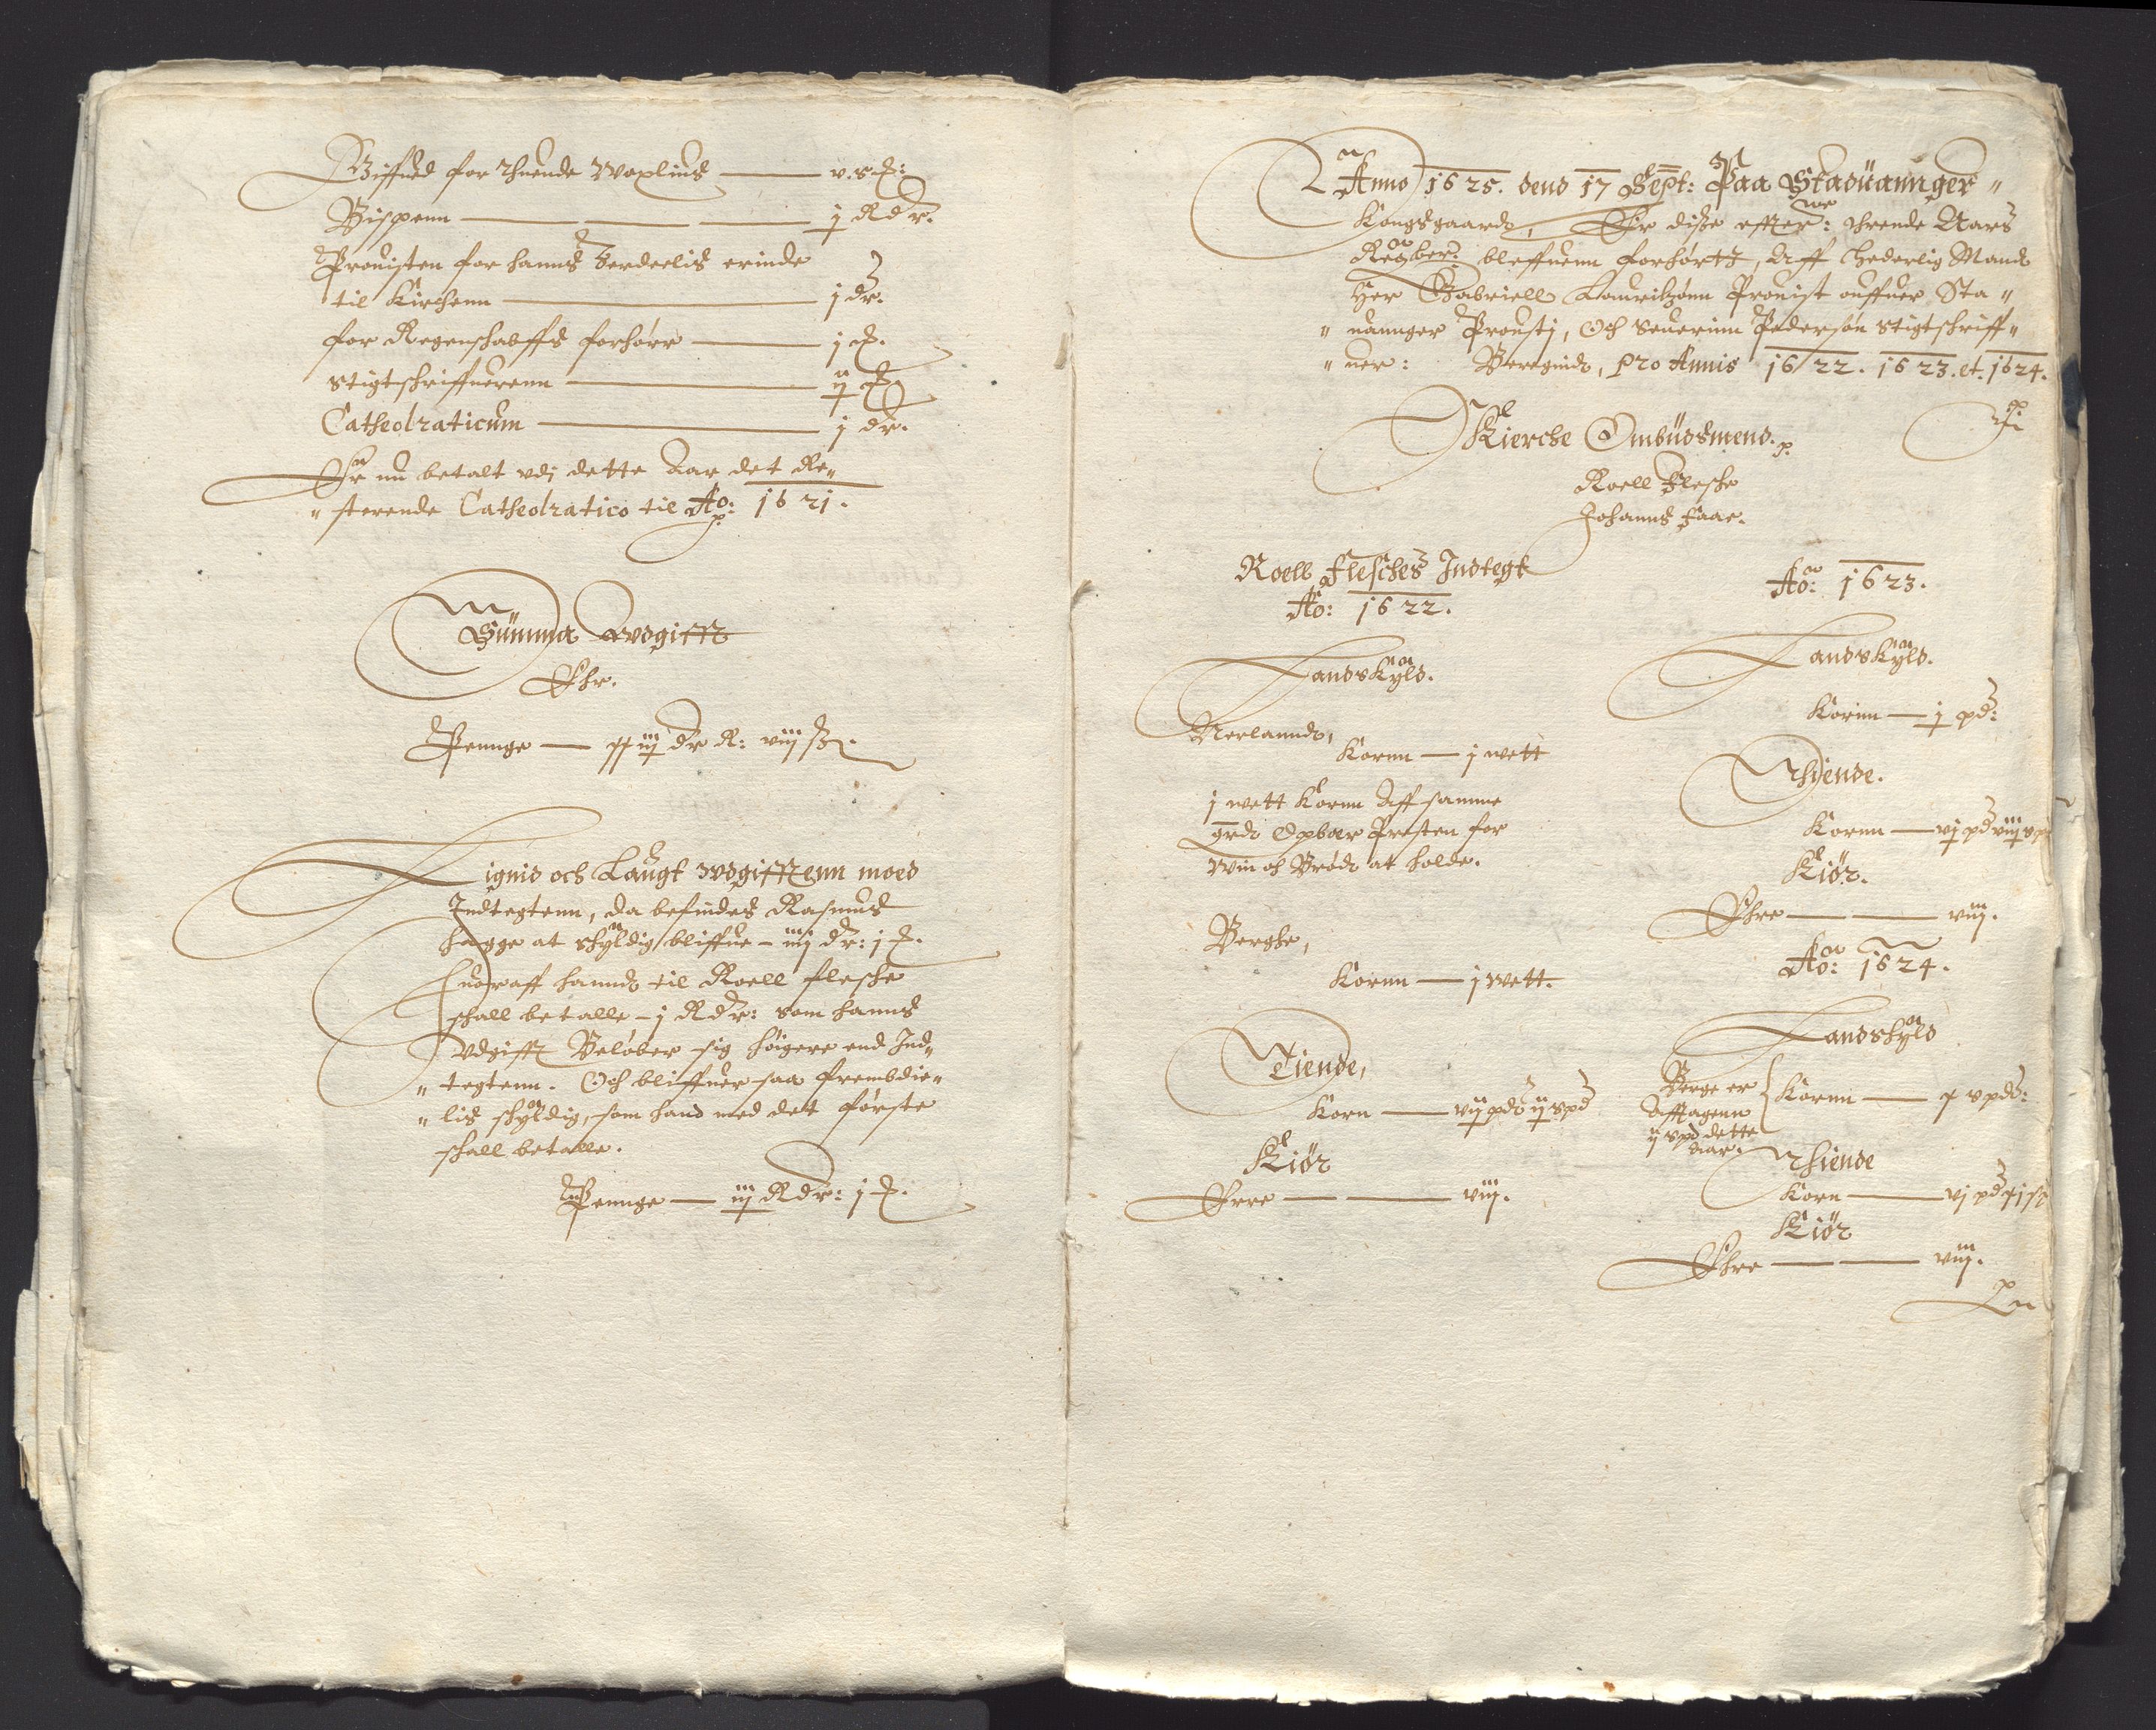 Giffued for thuende Woxlius — v.s ꝑ:
Bispenn — j Rdr.
Prouisten for hanns Berdeelis erinde
til Kirchenn — j dr.
for Regenschabffs forhörr — j
Stigtschriffuerenn — ij
Cathedraticum — j dr.
Er nu betalt vdj dette Aar det Re„
„sterende Cathedratico til Ao: 1621.
Summa Wdgifft
Ehr.
Pennge — iij dr R: viij ß.
Lignid och Laugt Wdgifftenn moed
Indtegtenn, da befindes Rasmus
Hagge at schyldig bliffue – iiij dr: j
Huoraff hannd til Roell Flesche
schall betalle – j Rdr: som hanns
Vdgifft Beløber sig höigere end Ind„
„tegtenn. Och bliffuer saa frembdie„
„lis schyldig, som hand med det første
schall betalle.
Pennge — iij Rdr: j
Anno 1625. dend 17 Sept: Paa Staduannger„
Kongsgaard, Er diße effter: thrende Aars
Regber: bleffuenn forhörtt, Aff Hederlig Mand
Her Gabriell Lauritzønn Prouist ouffuer Sta„
„uannger Proustj, Och Seuerinn Pedersøn Stigtschriff„
„uer: Beregnid, pro Annis 1622. 1623. et. 1624.
Kierche Ombudsmend.
Roell Flesche
Johanns Faae.
Roell Flesches Indtegt
Ao: 1622.
Landskyld.
Nerlannd,
Kornn — j wett
j wett Kornn Aff samme
grd Opbær Presten for
Win och Brød at holde.
Berghe,
Kornn — j wett.
Tiende,
Korn — vij pd ij spd
Kiör
Erre — viij.
Ao: 1623.
Landskyld.
Kornn — j pd:
Thiende.
Kornn — vj pd viij sp
Kiör.
Ehre — viij.
Ao: 1624.
Landskyld
Berge er
Afftagenn
ij spd dette
Aar.
Kornn — spd:
Thiende
Korn — vj pd
Kiör
Ehre — viij.